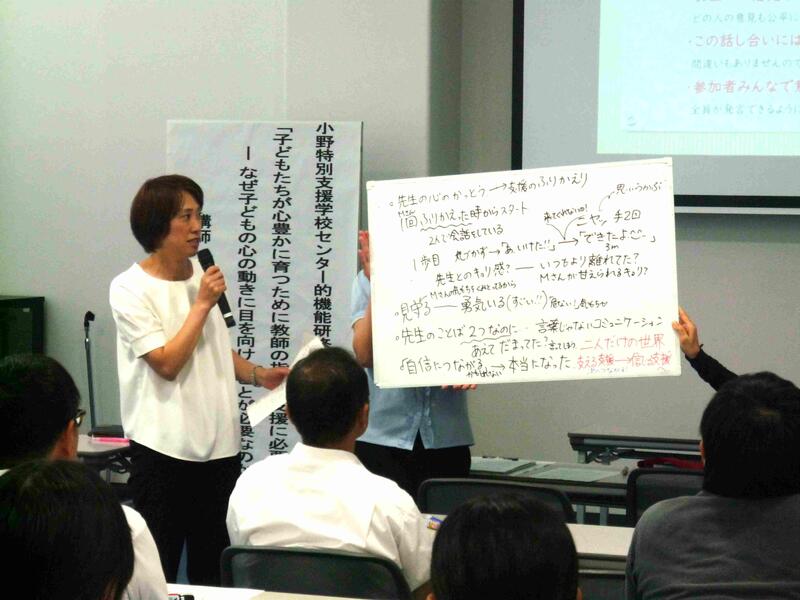 どの人の意見も公平に
・この話し合いには
間違いもありませんので
・参加者みんなで
全員が発言できるように
小野特別支援学校センター的機能研修
「子どもたちが心豊かに育つために教師の
支援に必要
ーなぜ子どもの心の動きに目を向け
ことが必要なのか
講師
。先生の心のかっとう→支援のふりかえり
1回ふりかえた時からスタート
2人で会話をしている
ニヤッ 手2回
1歩目
「あ、いけた!!」→「できたよ
3m
先生とのキョリ感?ーいつもより離れてた?
Mさんが甘えられるキョリ?
見守るー勇気いる(すごい!!)
。先生のことば2つなのに・言葉じゃないコミュニケーション
あえてだまってた?
二人だけの世界
「自信につながる→本当になった
支える支援→信じる支援